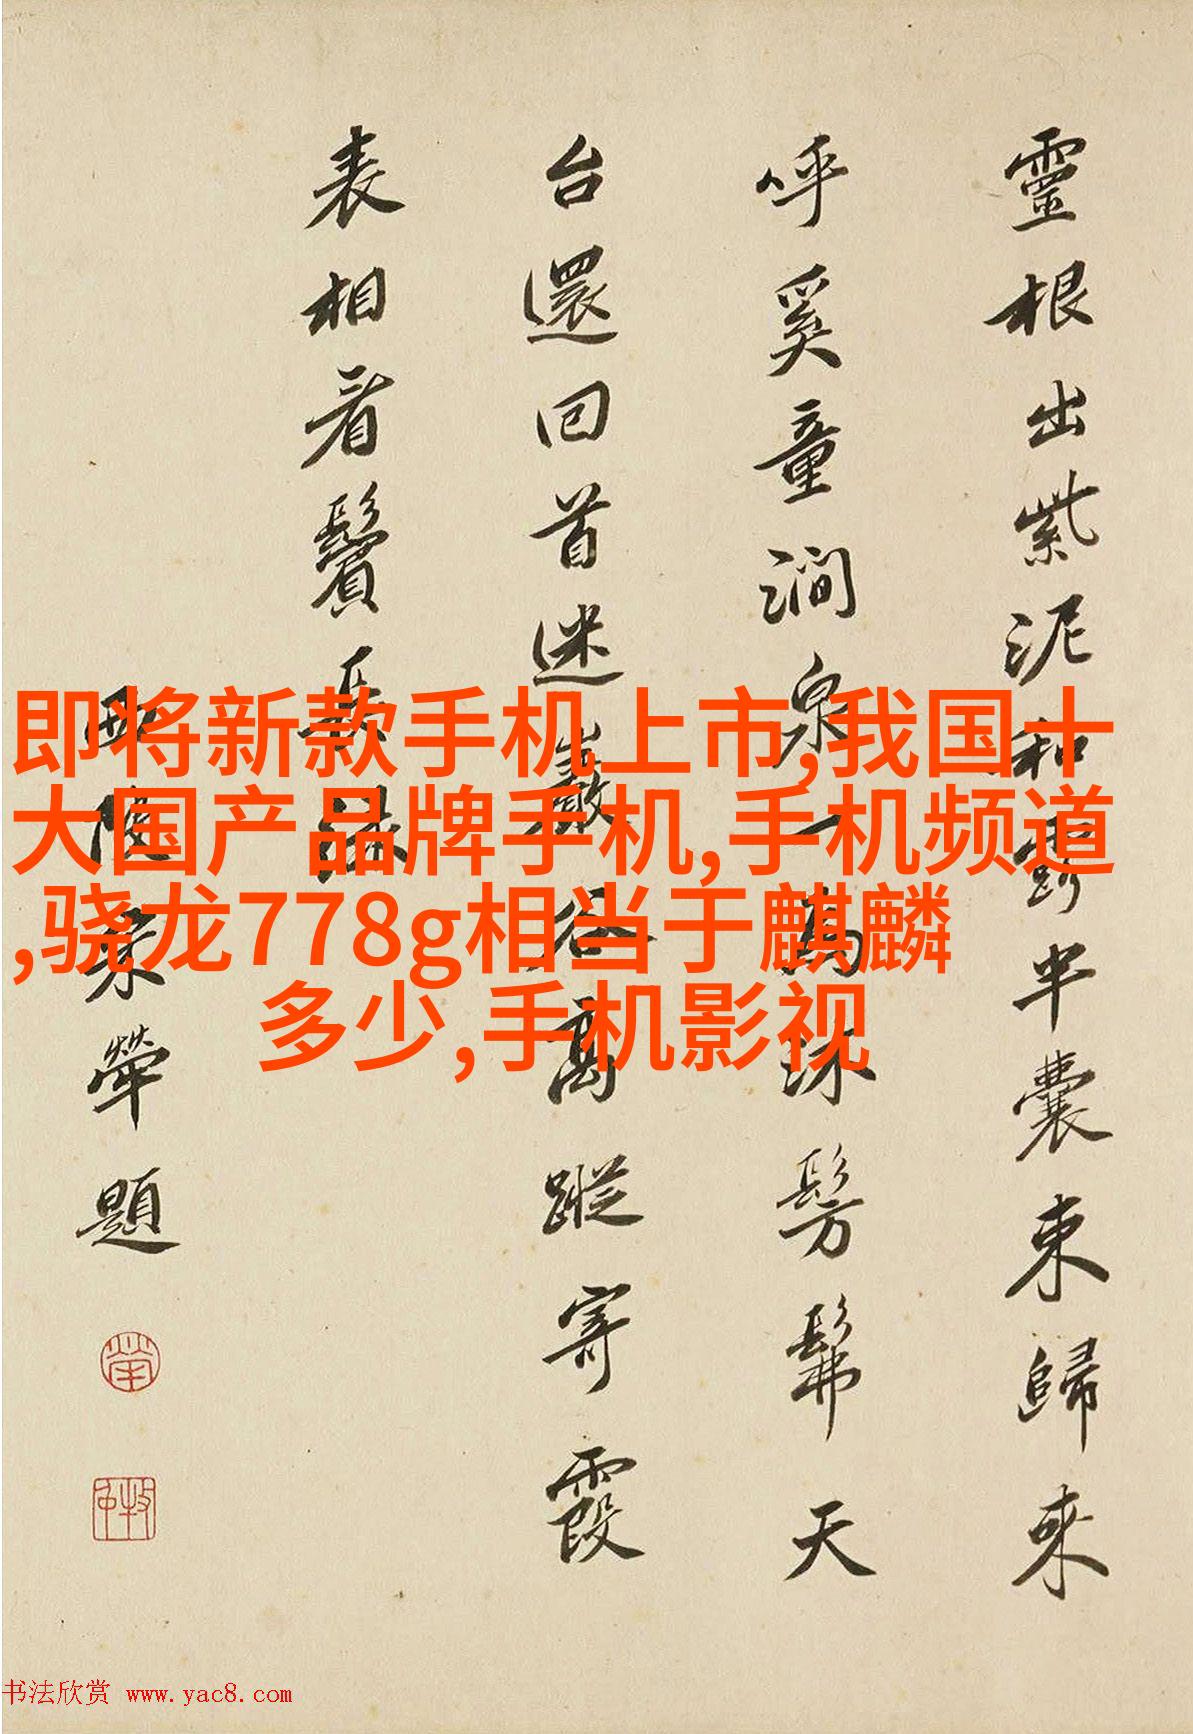 靈根出紫泥和露半囊束歸來
呼奚童澗泉一為沐髣髴天
台還回首迷巖谷高蹤寄霞
表相看鬢長
西陂宋犖題
犖
牧仲
即将新款手机上市,我国十
大国产品牌手机,手机频道
,骁龙778g相当于麒麟
多少,手机影视
书法欣赏 www.yac8.com